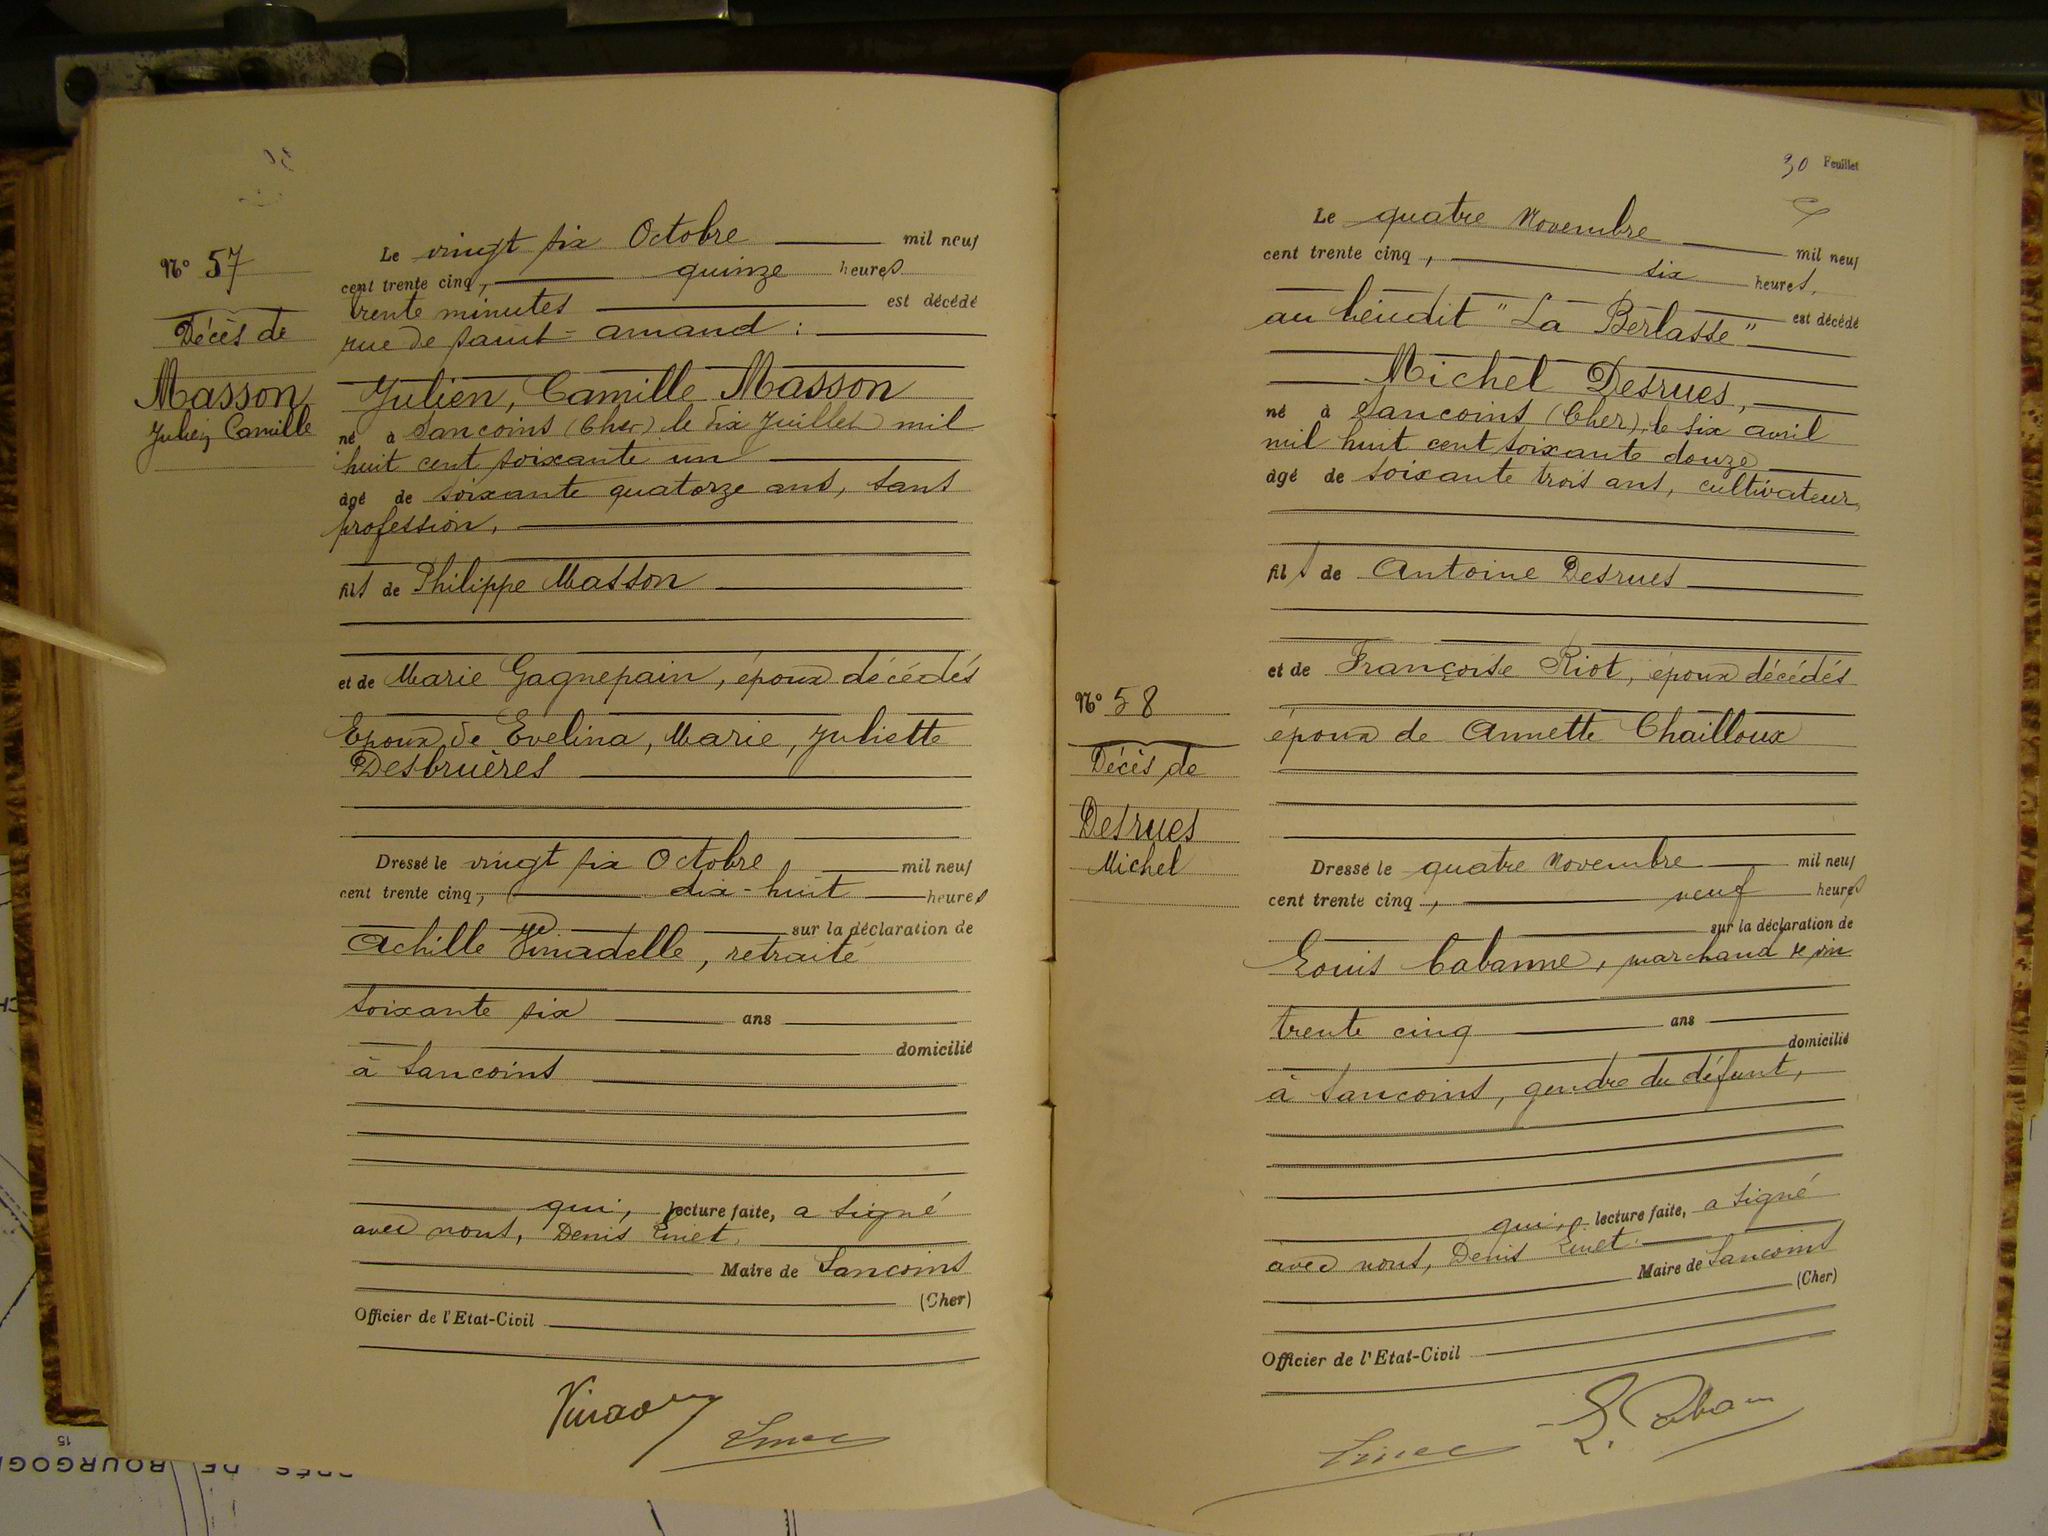 N° 57
Décès de
Masson
Julien Camille
Le vingt six Octobre mil neuf
cent trente cinq, quinze heures
trente minutes est décédé
rue de saint-amand :
Julien, Camille Masson
né à Sancoins (Cher) le dix Juillet mil
huit cent soixante un
âgé de soixante quatorze ans, sans
profession,
fils de Philippe Masson
et de Marie Gagnepain, époux décédés
Epoux de Evelina, Marie, Juliette
Desbruères
Dressé le vingt six Octobre mil neuf
cent trente cinq, dix-huit heures
sur la déclaration de
Achille Vinadelle, retraité
soixante six ans
domicilié
à Sancoins
qui, lecture faite, a signé
avec nous, Denis
Maire de Sancoins
(Cher)
Officier de l'Etat-Civil
30 Feuillet
N° 58
Décès de
Desrues
Michel
Le quatre Novembre mil neuf
cent trente cinq, six heures,
est décédé
au lieudit "La Berlasse"
Michel Desrues,
né à Sancoins (Cher), le six avril
mil huit cent soixante douze
âgé de soixante trois ans, cultivateur,
fils de Antoine Desrues
et de Françoise Riot, époux décédés
époux de Annette Chailloux
Dressé le quatre Novembre mil neuf
cent trente cinq, neuf heures
sur la déclaration de
Louis Cabanne, marchand de vin
trente cinq ans
domicilié
à Sancoins, gendre du défunt,
qui, lecture faite, a signé
avec nous, Denis
Maire de Sancoins
(Cher)
Officier de l'Etat-Civil
15